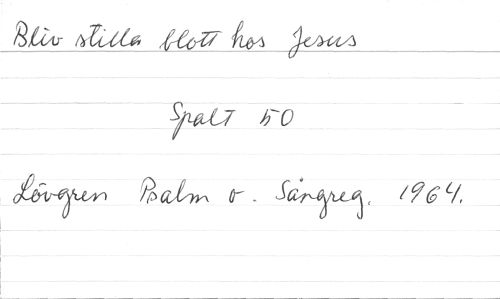 Bliv stilla blott hos Jesus
Spalt 50
Lövgren Psalm o. Sångreg. 1964.